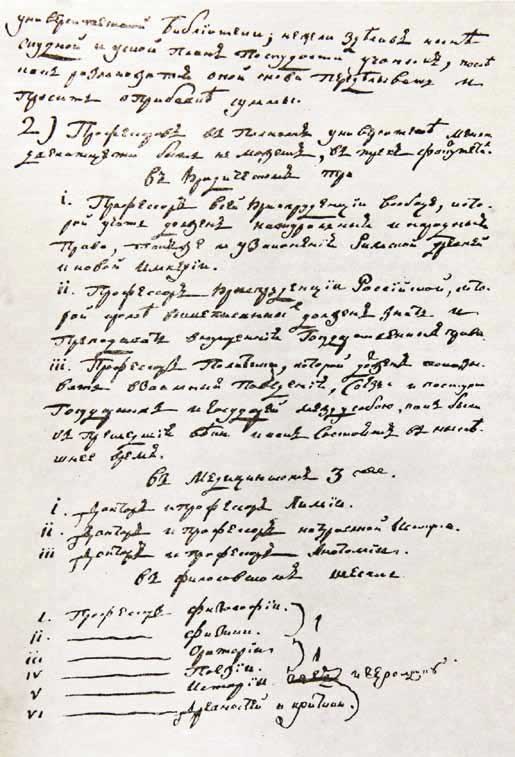 университетской Библіотеки, нежели здѣлавъ нынѣ
скудной и узкой планъ по скудости ученыхъ, послѣ
какъ размножатся оной снова передѣлывать и
просить о прибавкѣ суммы.
2) Профессоровъ въ полномъ университетѣ меньше
двенатцати быть не можетъ, въ трехъ факультет.
въ Юридическомъ три
i. Профессоръ всей Юриспруденціи вообще, кото-
рой учить долженъ натуральныя и народныя
права, также и узаконенія Римской древней
и новой Имперіи.
ii. Профессоръ Юриспруденціи Россійской, кото-
рой кромѣ вышеписанныхъ долженъ знать и
преподавать внутреннія Государственныя права.
iii. Профессоръ Политики, которой долженъ показы-
вать взаимныя поведенія, союзы и поступки
Государствъ и Государей между собою, какъ были
въ прешедшіе вѣки и какъ состоятъ въ нынѣ-
шнее время.
въ Медицинскомъ 3 же.
i. Докторъ и профессоръ Химіи.
ii. Докторъ и профессоръ натуральной Исторіи.
iii Докторъ и профессоръ Анатоміи.
въ Философскомъ шесть
i. Профессоръ философіи.
ii. физики.
iii Ораторіи
iv Поэзіи.
v Исторіи
vi Древностей и критики.